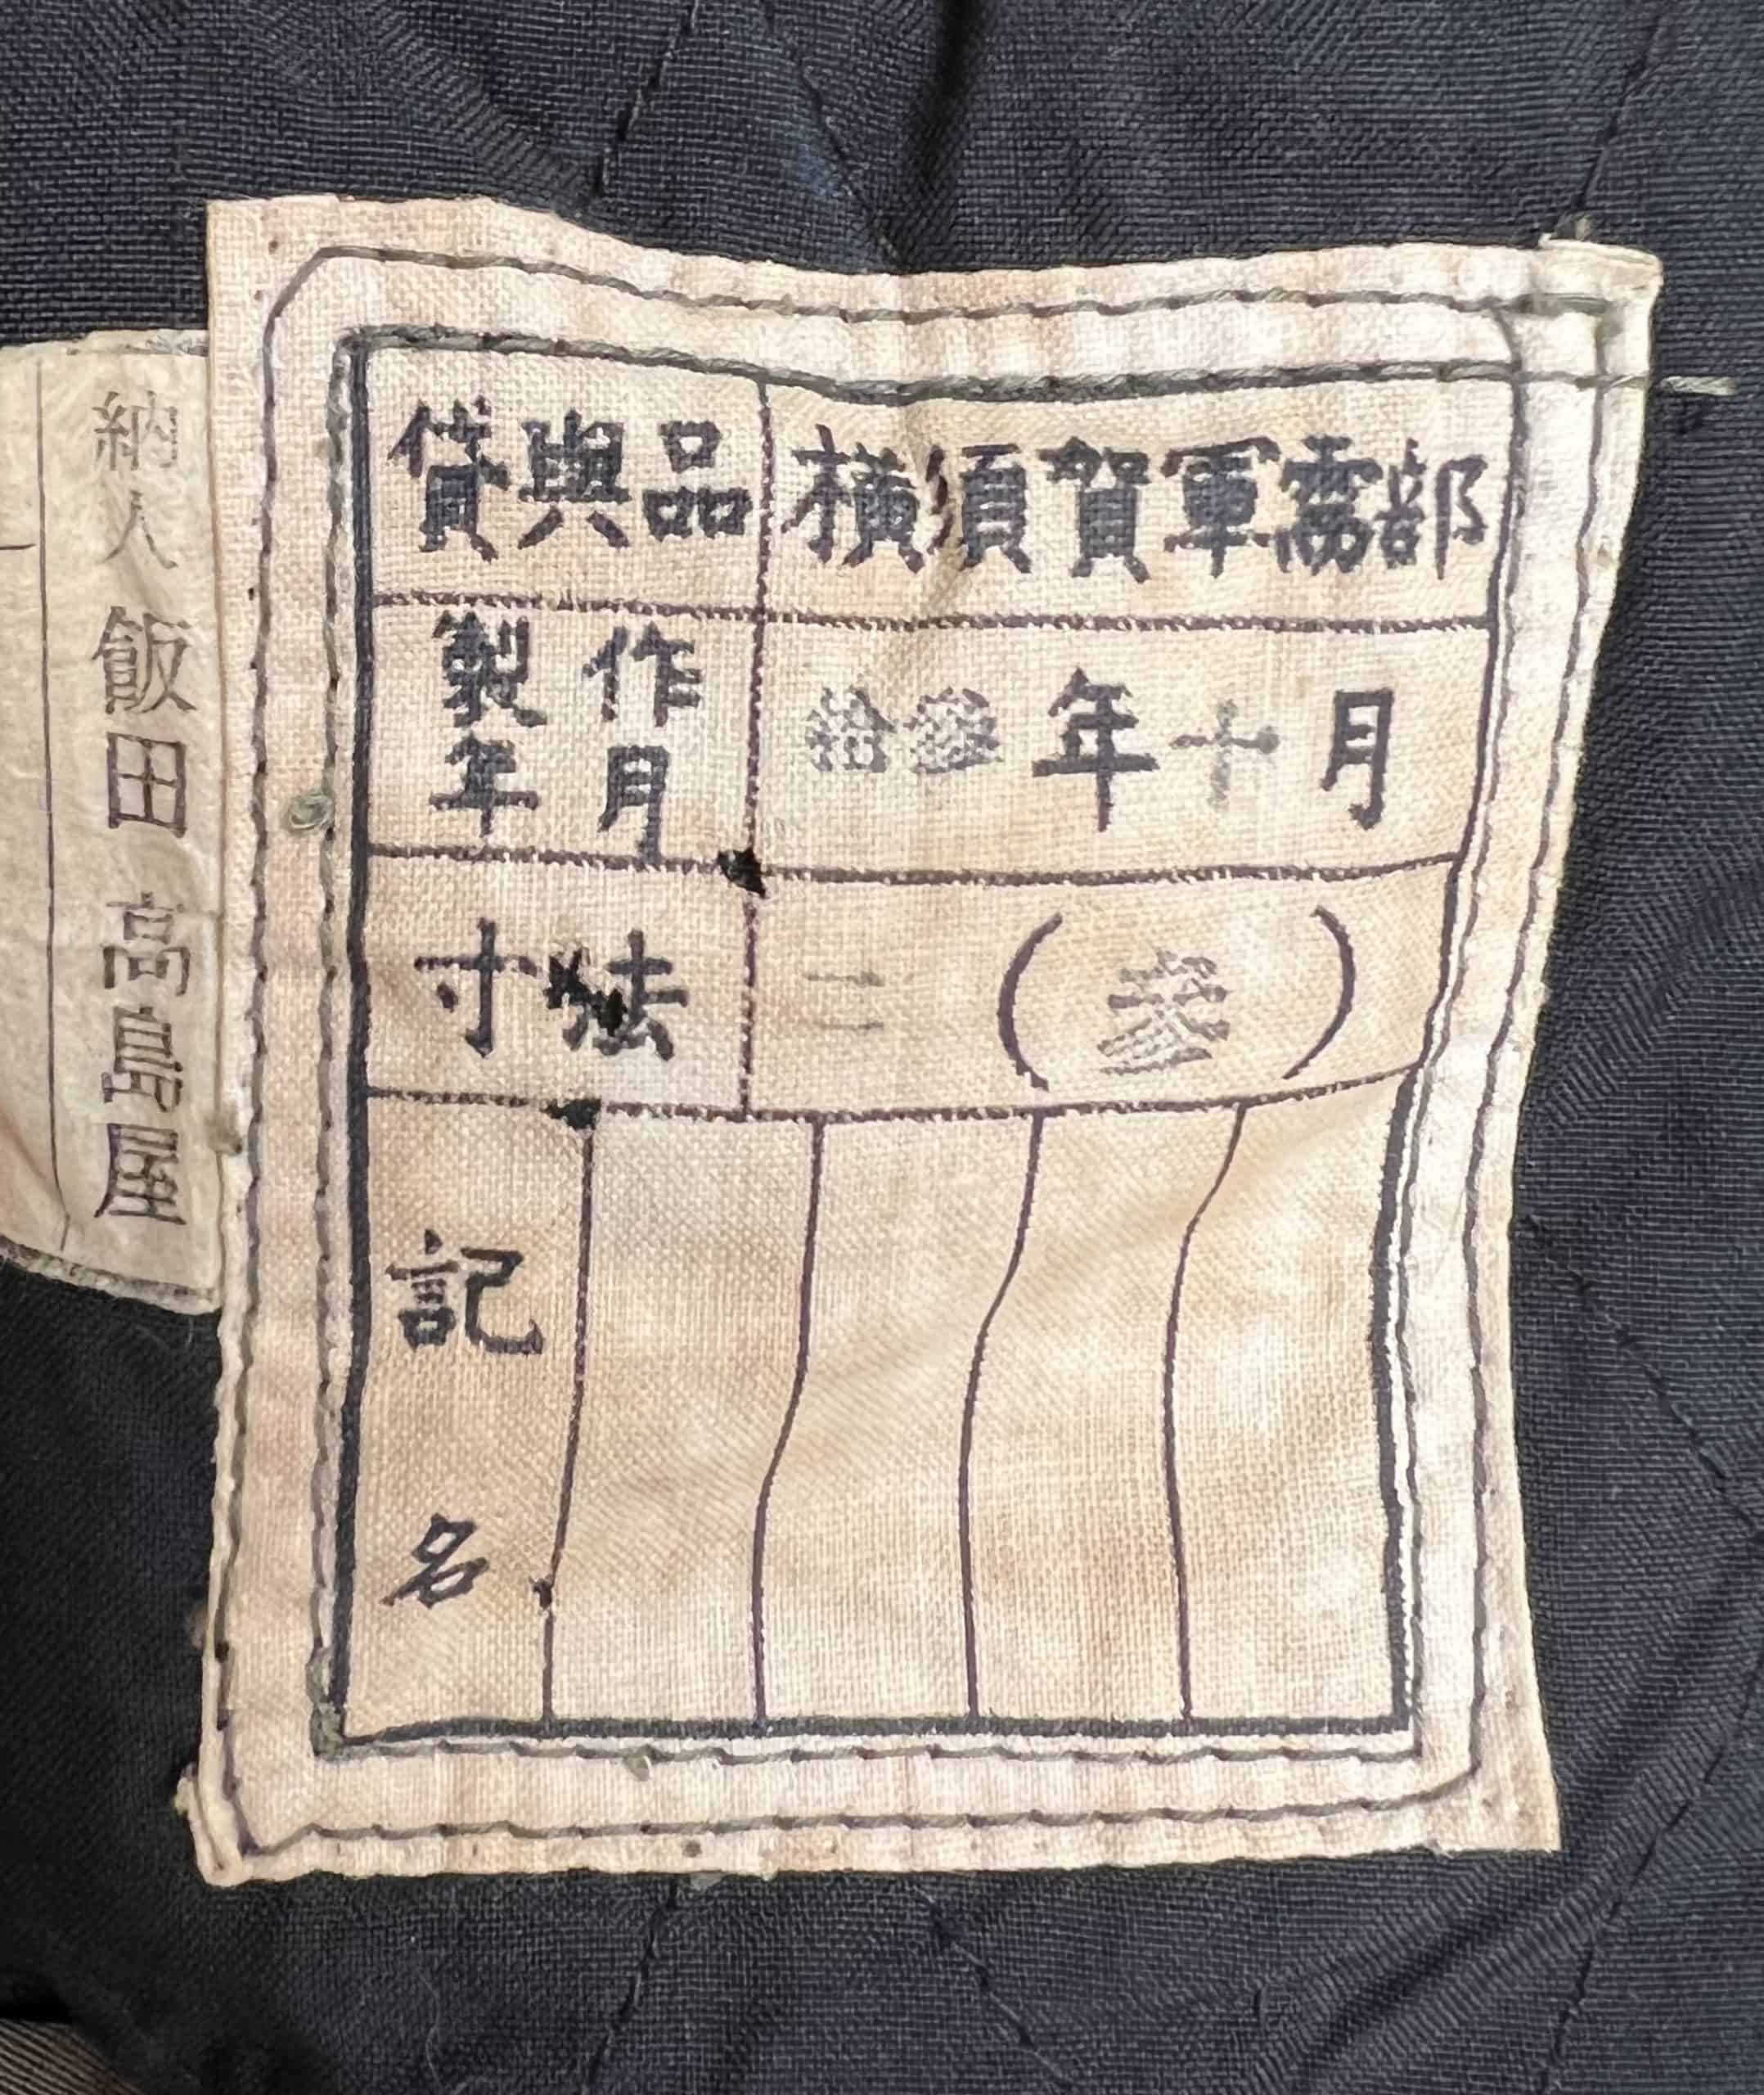 貸與品 横須賀軍需部
製作年月 拾參年十月
寸法 二(参)
記名
納人 飯田高島屋